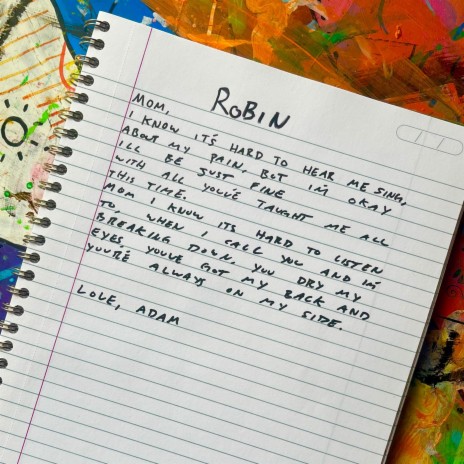 ROBIN
MOM,
I KNOW IT'S HARD TO HEAR ME SING,
ABOUT MY PAIN, BUT I'M OKAY
I'LL BE JUST FINE
WITH ALL YOU'VE TAUGHT ME ALL
THIS TIME.
MOM I KNOW ITS HARD TO LISTEN
TO, WHEN I CALL YOU AND I'M
BREAKING DOWN, YOU DRY MY
EYES, YOU'VE GOT MY BACK AND
YOU'RE ALWAYS ON MY SIDE.
LOVE, ADAM